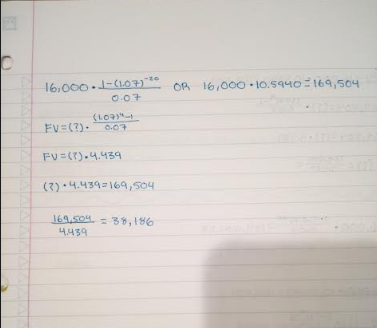 16,000 · 1-(1.07)^-20 / 0.07 OR 16,000 · 10.5940 = 169,504
FV=(?) · (1.07)^4-1 / 0.07
FV=(?) · 4.439
(?) · 4.439=169,504
169,504 / 4.439 = 38,186